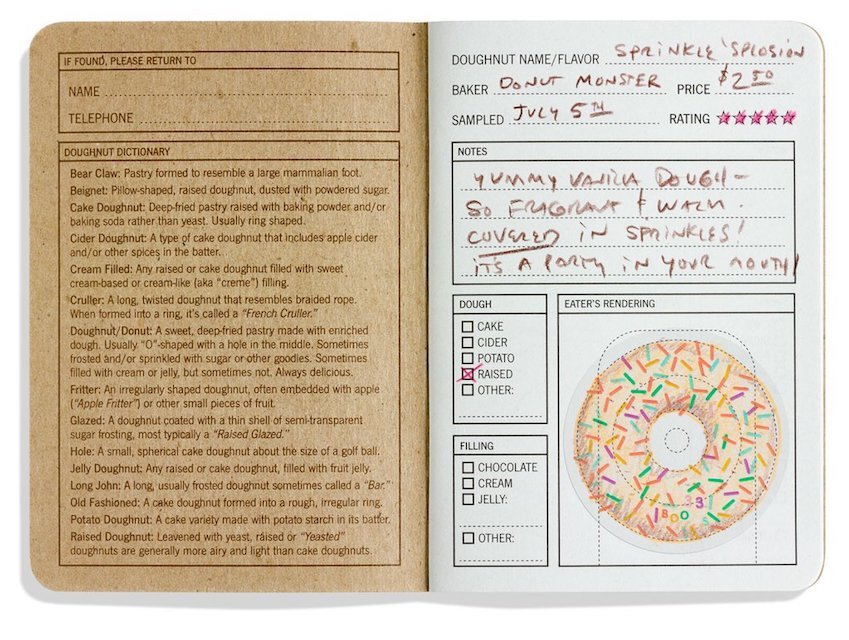 IF FOUND, PLEASE RETURN TO
NAME
TELEPHONE
DOUGHNUT DICTIONARY
Bear Claw: Pastry formed to resemble a large mammalian foot.
Beignet: Pillow-shaped, raised doughnut, dusted with powdered sugar.
Cake Doughnut: Deep-fried pastry raised with baking powder and/or
baking soda rather than yeast. Usually ring shaped.
Cider Doughnut: A type of cake doughnut that includes apple cider
and/or other spices in the batter.
Cream Filled: Any raised or cake doughnut filled with sweet
cream-based or cream-like (aka “creme”) filling.
Cruller: A long, twisted doughnut that resembles braided rope.
When formed into a ring, it’s called a “French Cruller.”
Doughnut/Donut: A sweet, deep-fried pastry made with enriched
dough. Usually “O”-shaped with a hole in the middle. Sometimes
frosted and/or sprinkled with sugar or other goodies. Sometimes
filled with cream or jelly, but sometimes not. Always delicious.
Fritter: An irregularly shaped doughnut, often embedded with apple
(“Apple Fritter”) or other small pieces of fruit.
Glazed: A doughnut coated with a thin shell of semi-transparent
sugar frosting, most typically a “Raised Glazed.”
Hole: A small, spherical cake doughnut about the size of a golf ball.
Jelly Doughnut: Any raised or cake doughnut, filled with fruit jelly.
Long John: A long, usually frosted doughnut sometimes called a “Bar.”
Old Fashioned: A cake doughnut formed into a rough, irregular ring.
Potato Doughnut: A cake variety made with potato starch in its batter.
Raised Doughnut: Leavened with yeast, raised or “Yeasted”
doughnuts are generally more airy and light than cake doughnuts.
DOUGHNUT NAME/FLAVOR SPRINKLE 'SPLOSION
BAKER DONUT MONSTER PRICE $2.50
SAMPLED JULY 5TH RATING
NOTES
YUMMY VANILLA DOUGH -
SO FRAGRANT & WARM.
COVERED IN SPRINKLES!
ITS A PARTY IN YOUR MOUTH!
DOUGH
CAKE
CIDER
POTATO
RAISED
OTHER:
FILLING
CHOCOLATE
CREAM
JELLY:
OTHER:
EATER’S RENDERING